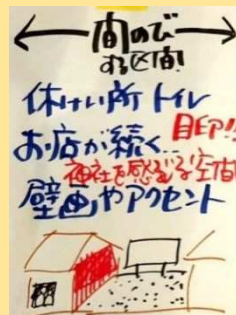 間のび
する区間
休けい所 トイレ
お店が続く…
目印!!
神社を感じる空間
壁画やアクセント